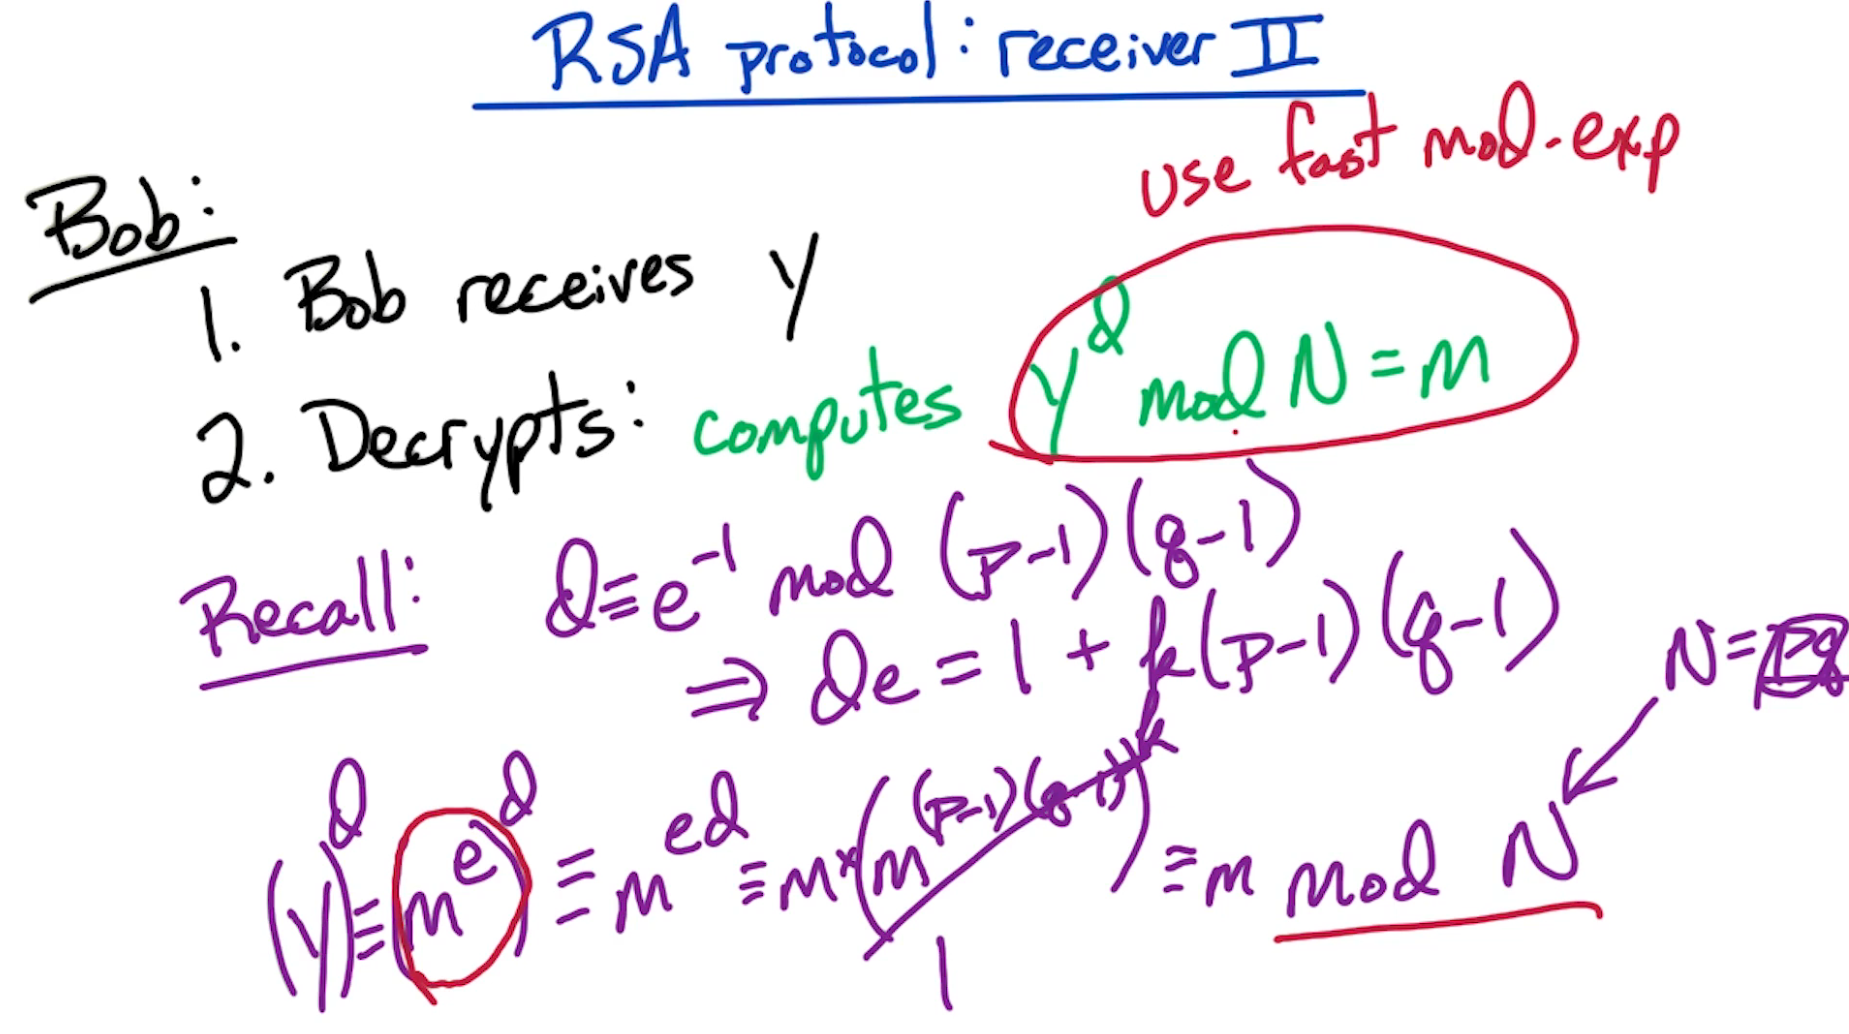 RSA protocol: receiver II
use fast mod-exp
Bob:
1. Bob receives y
2. Decrypts: computes y^d mod N = m
Recall: d ≡ e^-1 mod (p-1)(q-1)
⇒ de = 1 + k(p-1)(q-1)
N = pq
(y)^d ≡ (m^e)^d ≡ m^ed ≡ m × (m^(p-1)(q-1))^k ≡ m mod N
1